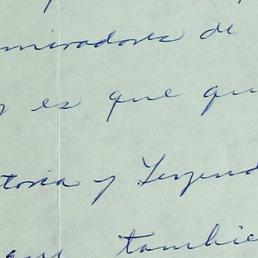 miradores de
es que qu
toria y Leyend
tambie